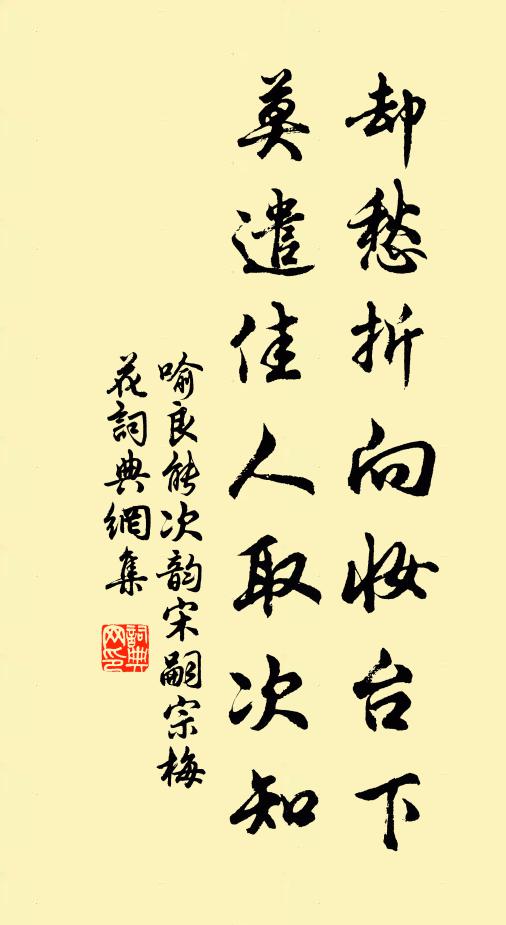 却愁折向妆台下
莫遣佳人取次知
喻良能次韵宋嗣宗梅
花詞典網集
詞典網印